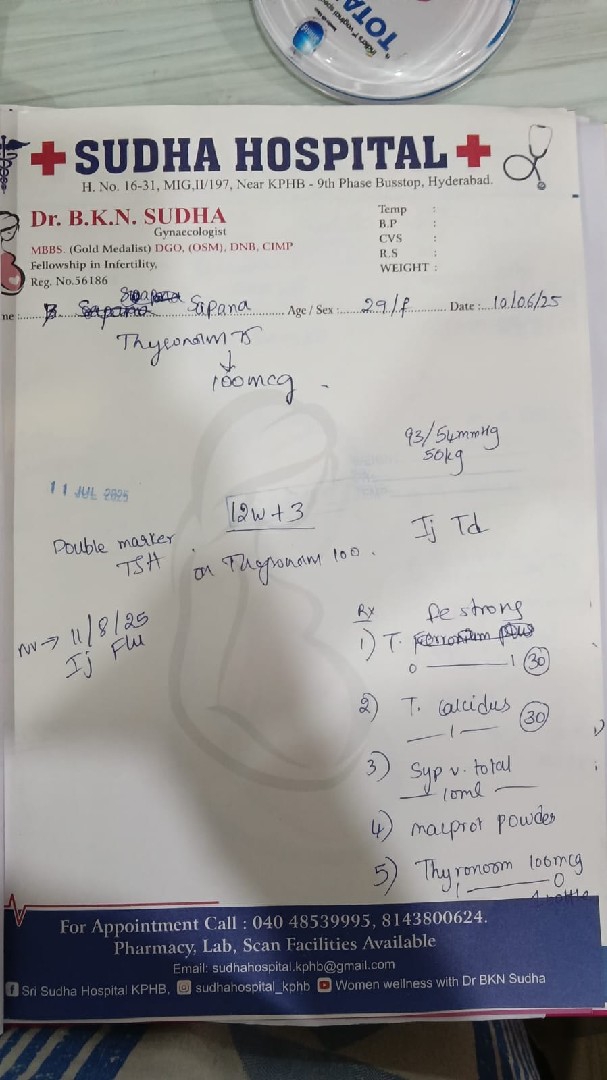 TOTA
SUDHA HOSPITAL
H. No. 16-31, MIG,II/197, Near KPHB - 9th Phase Busstop, Hyderabad.
Dr. B.K.N. SUDHA
Gynaecologist
MBBS. (Gold Medalist) DGO, (OSM), DNB, CIMP
Fellowship in Infertility,
Reg. No.56186
Temp :
B.P :
CVS :
R.S :
WEIGHT :
me :..... Sapana Age / Sex :..... 29/f Date :... 10/06/25
Thyronorm 75
↓
100mcg
93/54mmHg
50kg
11 JUL 2025
12w+3
Ij Td
Double marker
TSH on Thyronorm 100.
NV → 11/8/25
Ij Flu
Rx
Fe strong
1) T.
0 ——— 1 30
2) T. Calcidus 30
— 1 —
3) Syp v. total
— 10ml —
4) macprot powder
5) Thyronorm 100mcg
1 ——— 0
For Appointment Call : 040 48539995, 8143800624.
Pharmacy, Lab, Scan Facilities Available
Email: sudhahospital.kphb@gmail.com
Sri Sudha Hospital KPHB, sudhahospital_kphb Women wellness with Dr BKN Sudha